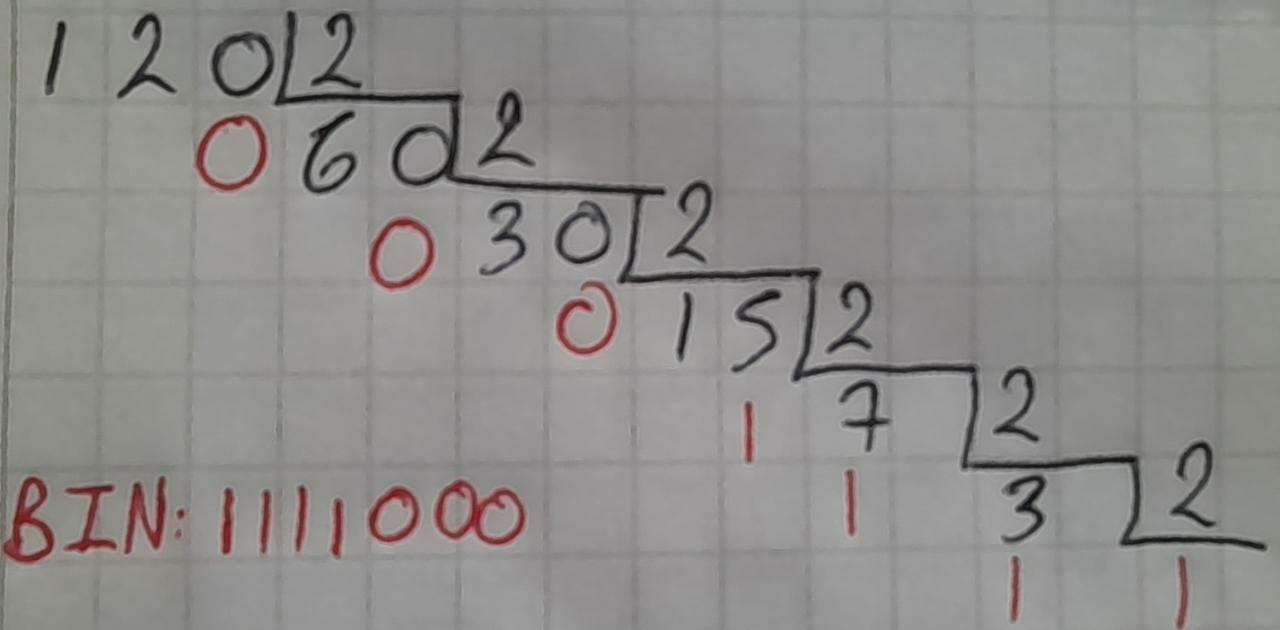 1 2 0 2
0 6 0 2
0 3 0 2
0 1 5 2
1 7 2
1 3 2
1 1
BIN: 1111000